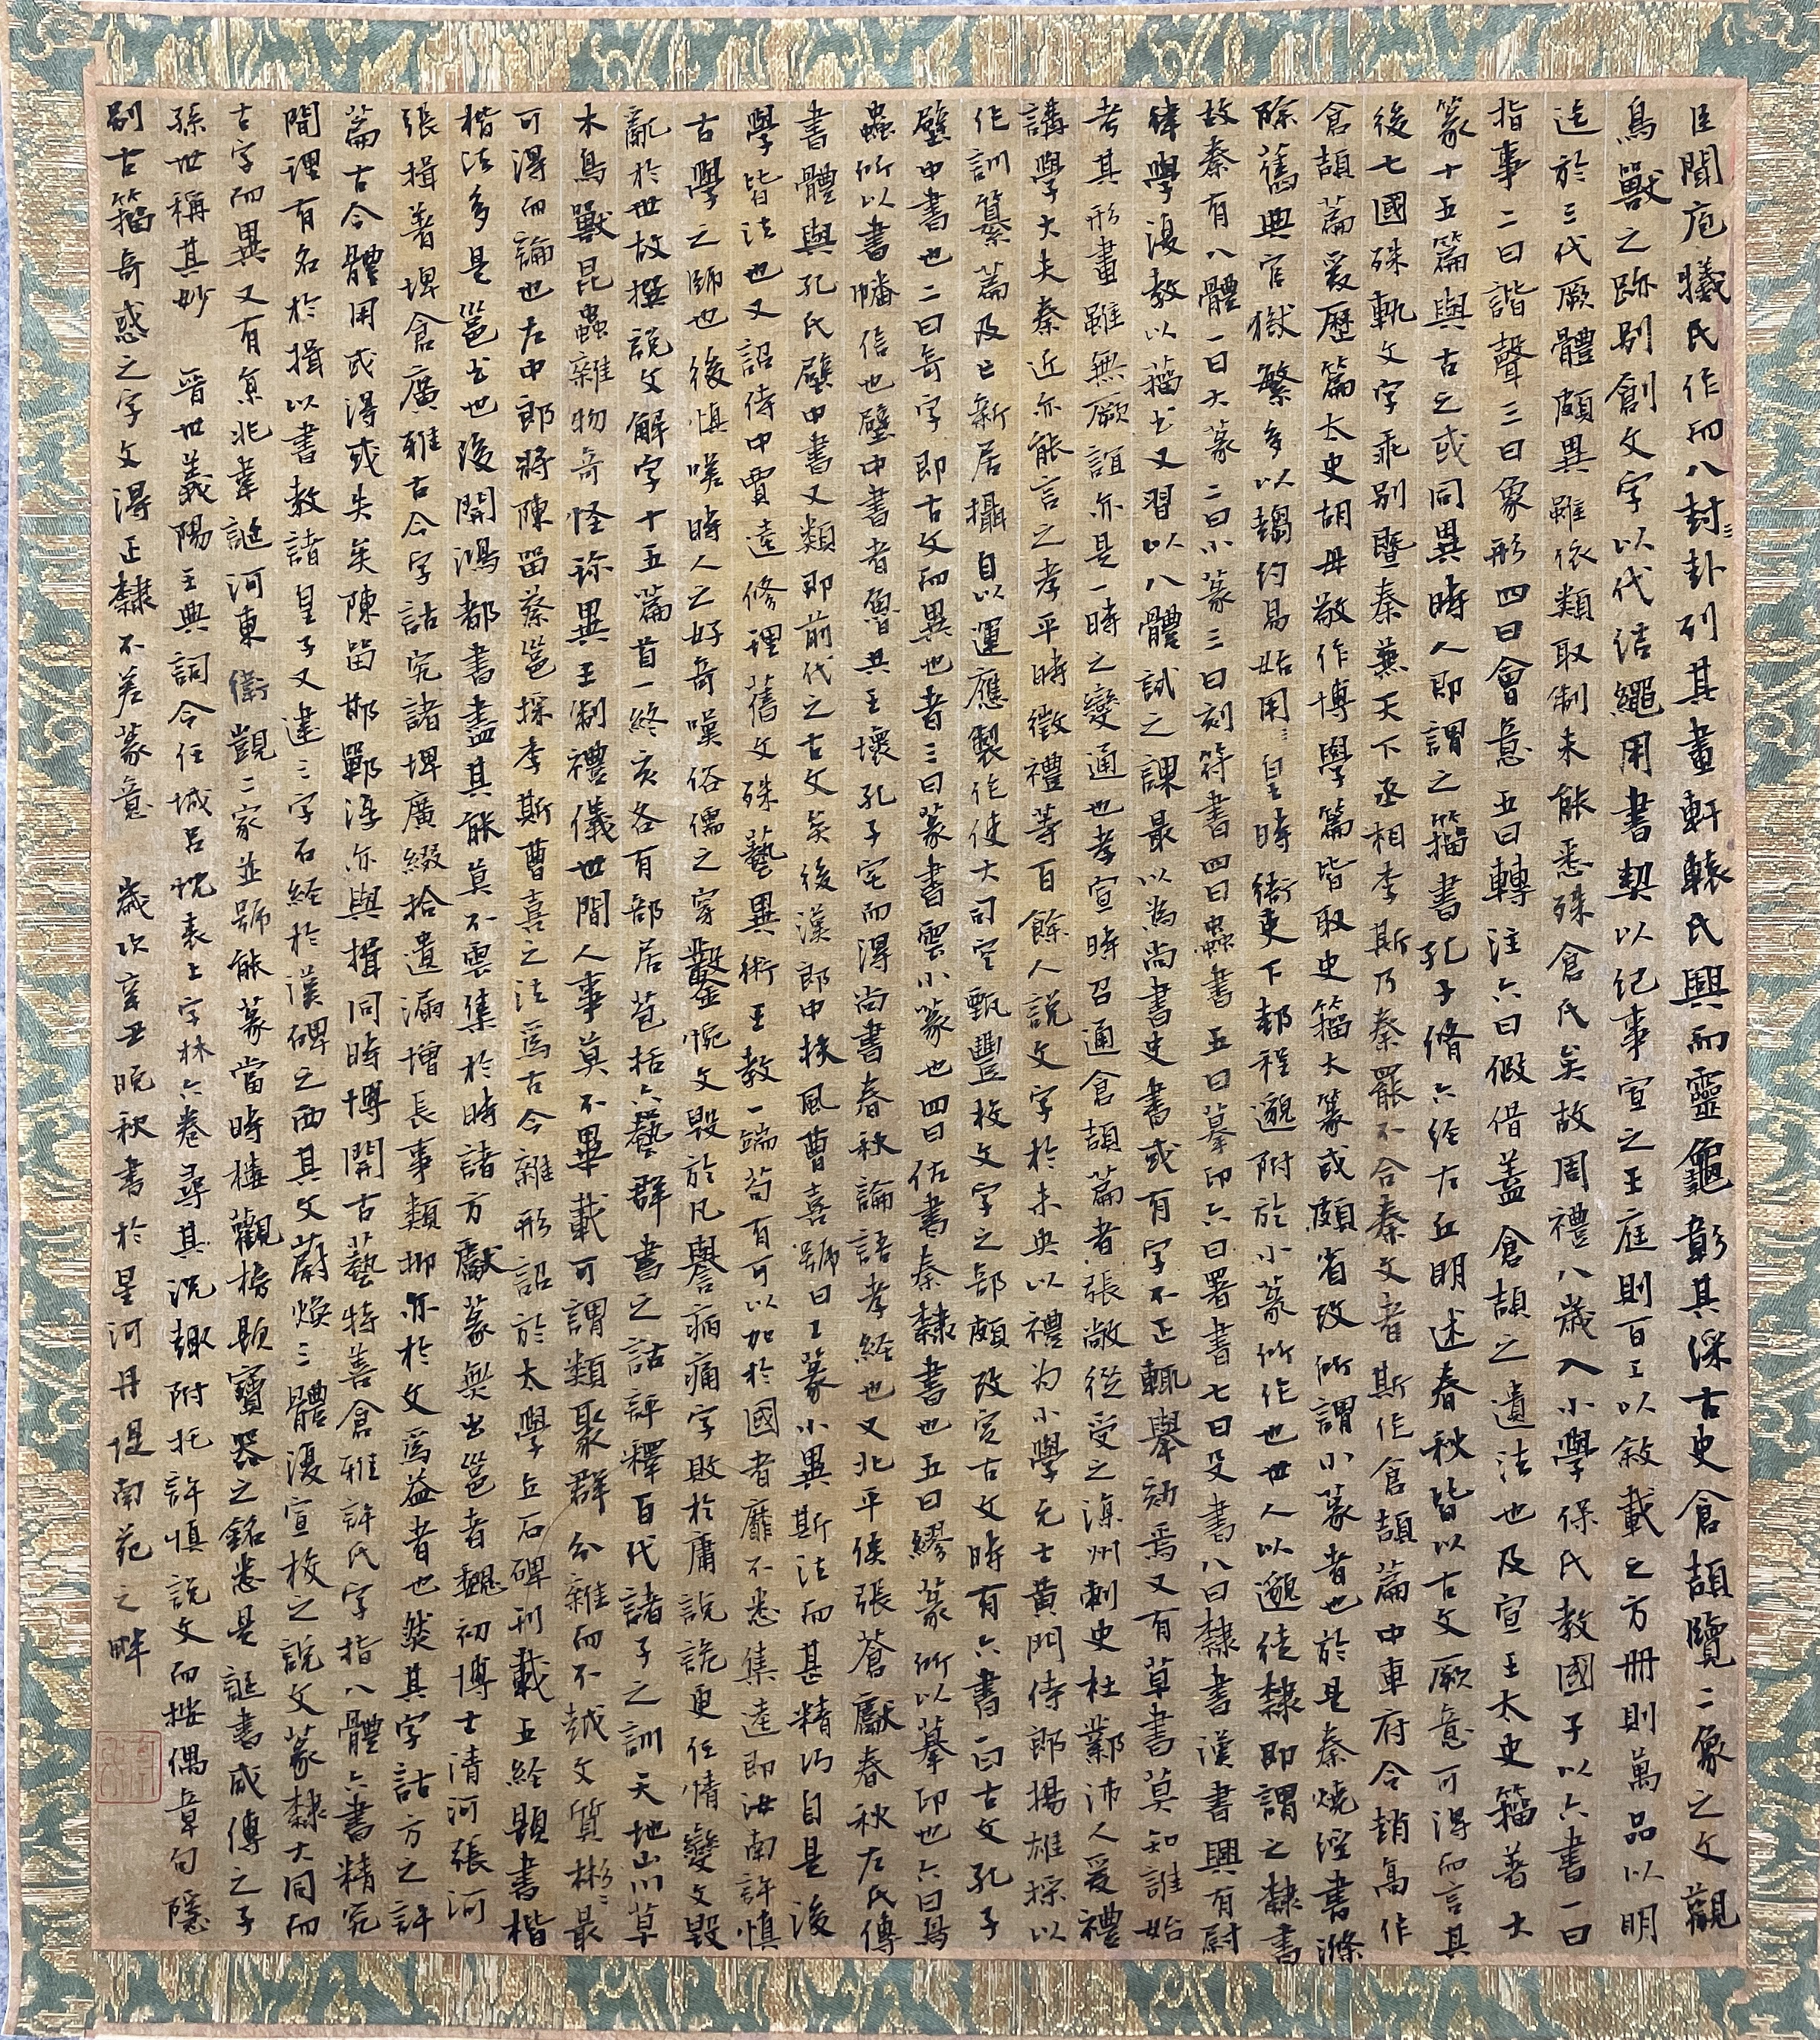 臣聞庖犧氏作而八封〻卦列其畫軒轅氏興而靈龜彰其採古史倉頡覽二象之文觀
鳥獸之跡別創文字以代結繩用書契以紀事宣之王庭則百工以敘載之方冊則萬品以明
迄於三代厥體頗異雖依類取制未能悉殊倉氏矣故周禮八歲入小學保氏教國子以六書一曰
指事二曰諧聲三曰象形四曰會意五曰轉注六曰假借蓋倉頡之遺法也及宣王太史籀著大
篆十五篇與古文或同異時人即謂之籀書孔子脩六經左丘明述春秋皆以古文厥意可得而言其
後七國殊軌文字乖別暨秦兼天下丞相李斯乃奏罷不合秦文者斯作倉頡篇中車府令趙高作
倉頡篇爰歷篇太史胡毋敬作博學篇皆取史籀大篆或頗省改所謂小篆者也於是秦燒經書滌
除舊典官獄繁多以趨約易始用〻皇時衙吏下邽程邈附於小篆所作也世人以邈徒隸即謂之隸書
故秦有八體一曰大篆二曰小篆三曰刻符書四曰蟲書五曰摹印六曰署書七曰殳書八曰隸書漢書興有尉
律學復教以籀書又習以八體試之課最以為尚書史書或有字不正輒舉劾焉又有草書莫知誰始
考其形畫雖無厥誼亦是一時之變通也孝宣時召通倉頡篇者張敞從受之涼州刺史杜鄴沛人爰禮
講學大夫秦近亦能言之孝平時徵禮等百餘人說文字於未央以禮为小學元士黃門侍郎揚雄採以
作訓纂篇及亡新居攝自以運應製作使大司空甄豐校文字之部頗改定古文時有六書一曰古文孔子
壁中書也二曰奇字即古文而異也者三曰篆書雲小篆也四曰佐書秦隸書也五曰繆篆所以摹印也六曰鳥
蟲所以書幡信也壁中書者魯共王壞孔子宅而得尚書春秋論語孝經也又北平侯張蒼獻春秋左氏傳
書體與孔氏壁中書又類即前代之古文矣後漢郎中扶風曹喜號曰工篆小異斯法而甚精巧自是後
學皆法也又詔侍中賈逵修理舊文殊藝異術王教一端苟有可以加於國者靡不悉集逵即汝南許慎
古學之師也後慎嗟時人之好奇嘆俗儒之穿鑿惋文毀於凡譽痛字敗於庸說詭更任情變文毀
亂於世故撰說文解字十五篇首一終亥各有部居苞括六藝群書之詁評釋百代諸子之訓天地山川草
木鳥獸昆蟲雜物奇怪珍異王制禮儀世間人事莫不畢載可謂類聚群分雜而不越文質彬〻最
可得而論也左中郎將陳留蔡邕採李斯曹喜之法爲古今雜形詔於太學立石碑刊載五經題書楷
楷法多是邕書也後開鴻都書畫其能莫不雲集於時諸方獻篆無出邕者魏初博士清河張河
張揖著埤倉廣雅古今字詁究諸埤廣綴拾遺漏增長事類抑亦於文爲益者也然其字詁方之許
篇古今體用或得或失矣陳留邯鄲淳亦與揖同時博開古藝特善倉雅許氏字指八體六書精究
閑理有名於揖以書教諸皇子又建三字石經於漢碑之西其文蔚煥三體復宣校之說文篆隸大同而
古字而異又有京兆韋誕河東衛覬二家並號能篆當時樓觀榜題寶器之銘悉是誕書咸傳之子
孫世稱其妙 晉世義陽王典詞令任城呂忱表上字林六卷尋其況趣附托許慎說文而按偶章句隱
別古籀奇惑之字文得正隸不差篆意 歲次辛丑晚秋書於星河丹堤南苑之畔